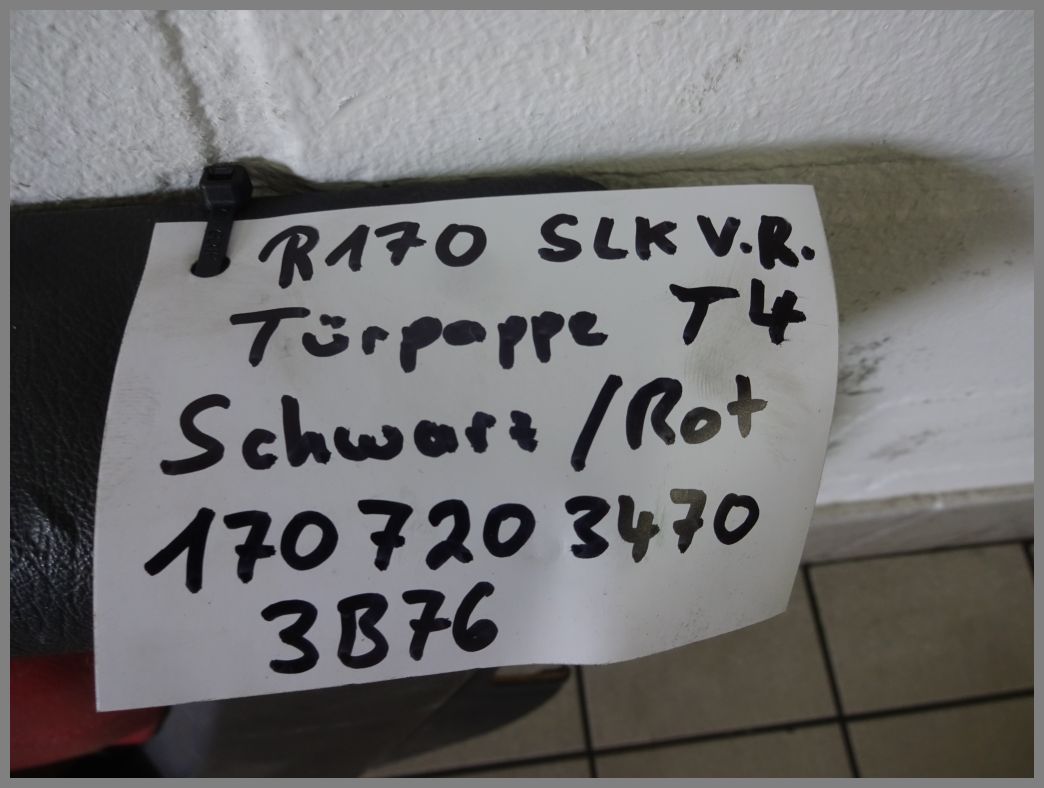 R170 SLK V.R.
Türpappe T4
Schwarz / Rot
170 720 3470
3B76